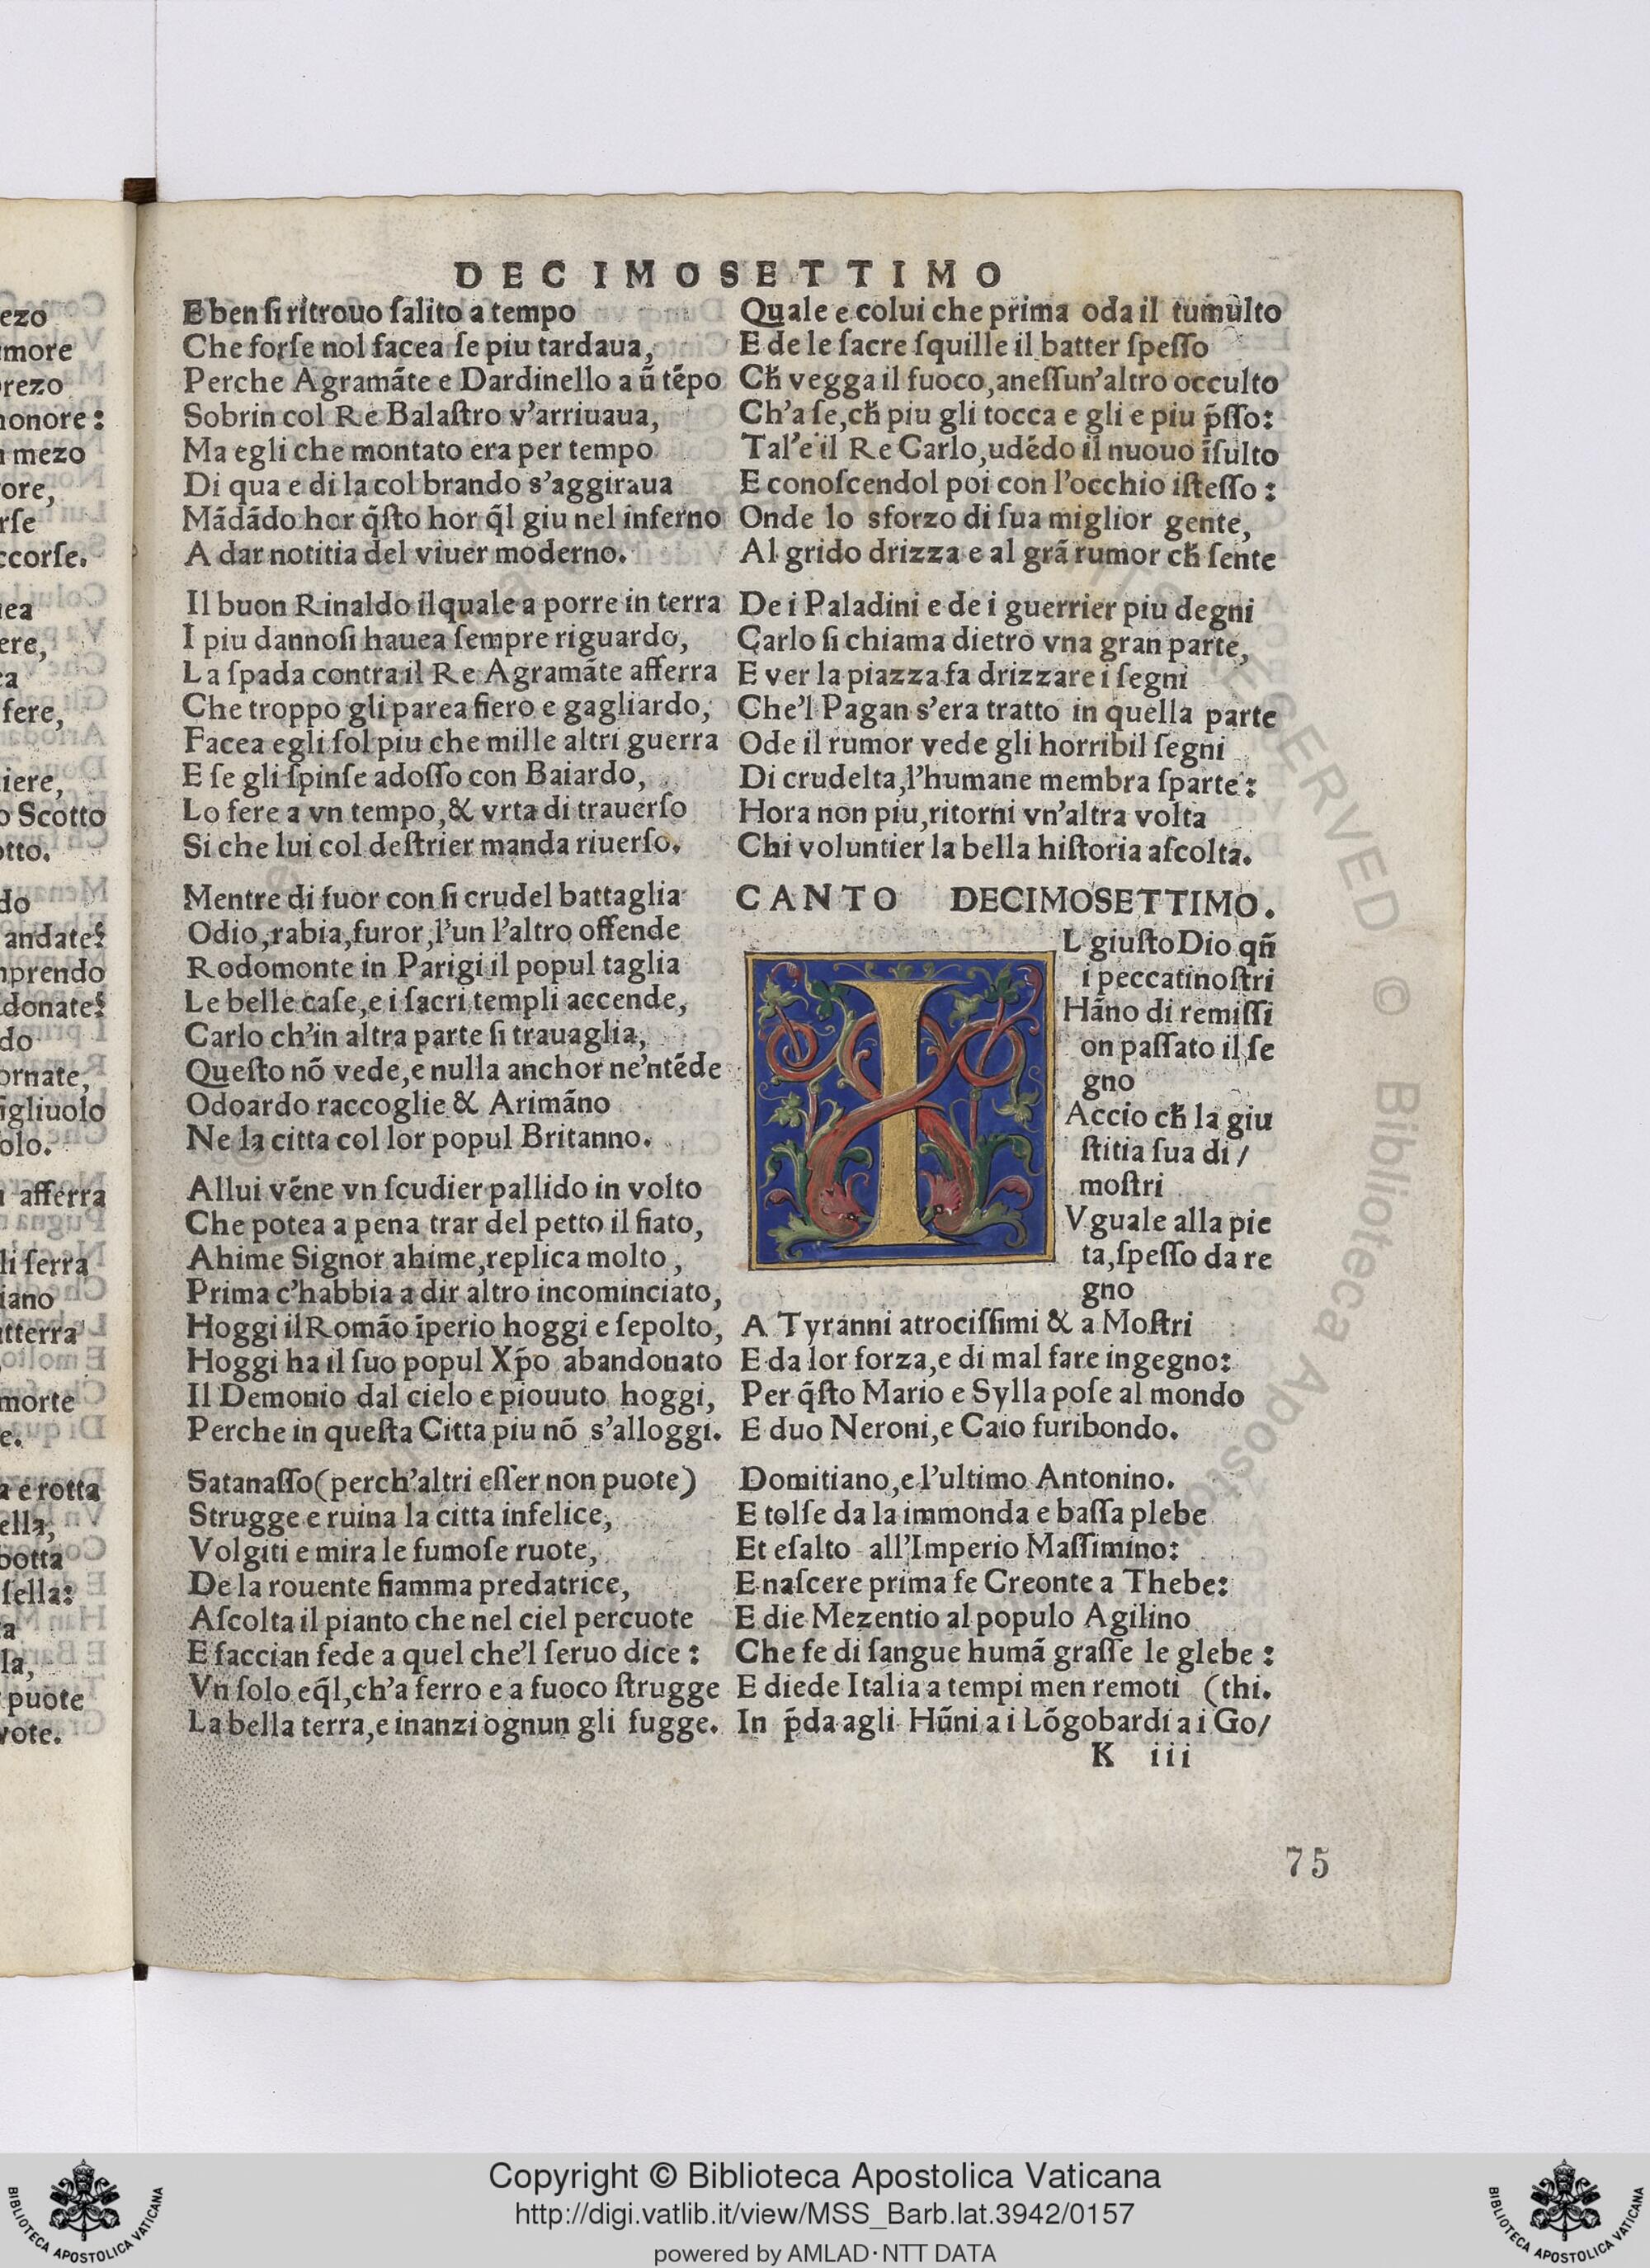 DECIMOSETTIMO
E ben ſi ritrouo ſalito a tempo
Che forſe nol facea ſe piu tardaua,
Perche Agramãte e Dardinello a ũ tẽpo
Sobrin col Re Balaſtro v'arriuaua,
Ma egli che montato era per tempo
Di qua e di la col brando s'aggiraua
Mãdãdo hor q̃ſto hor q̃l giu nel inferno
A dar notitia del viuer moderno.
Il buon Rinaldo ilquale a porre in terra
I piu dannoſi hauea ſempre riguardo,
La ſpada contra il Re Agramãte afferra
Che troppo gli parea fiero e gagliardo,
Facea egli ſol piu che mille altri guerra
E ſe gli ſpinſe adoſſo con Baiardo,
Lo fere a vn tempo, & vrta di trauerſo
Si che lui col deſtrier manda riuerſo.
Mentre di fuor con ſi crudel battaglia
Odio, rabia, furor, l'un l'altro offende
Rodomonte in Parigi il popul taglia
Le belle caſe, e i ſacri templi accende,
Carlo ch'in altra parte ſi trauaglia,
Queſto nõ vede, e nulla anchor ne'ntẽde
Odoardo raccoglie & Arimãno
Ne la citta col lor popul Britanno.
Allui vẽne vn ſcudier pallido in volto
Che potea a pena trar del petto il fiato,
Ahime Signor ahime, replica molto,
Prima c'habbia a dir altro incominciato,
Hoggi il Romão ĩperio hoggi e ſepolto,
Hoggi ha il ſuo popul Xp̃o abandonato
Il Demonio dal cielo e piouuto hoggi,
Perche in queſta Citta piu nõ s'alloggi.
Satanaſſo (perch'altri eſſer non puote)
Strugge e ruina la citta infelice,
Volgiti e mira le fumoſe ruote,
De la rouente fiamma predatrice,
Aſcolta il pianto che nel ciel percuote
E faccian fede a quel che'l ſeruo dice:
Vn ſolo eq̃l, ch'a ferro e a fuoco ſtrugge
La bella terra, e inanzi ognun gli fugge.
Quale e colui che prima oda il tumulto
E de le ſacre ſquille il batter ſpeſſo
Ch̃ vegga il fuoco, aneſſun'altro occulto
Ch'a ſe, ch̃ piu gli tocca e gli e piu p̃ſſo:
Tal'e il Re Carlo, udẽdo il nuouo ĩſulto
E conoſcendol poi con l'occhio iſteſſo:
Onde lo sforzo di ſua miglior gente,
Al grido drizza e al grã rumor ch̃ ſente
De i Paladini e de i guerrier piu degni
Carlo ſi chiama dietro vna gran parte,
E ver la piazza fa drizzare i ſegni
Che'l Pagan s'era tratto in quella parte
Ode il rumor vede gli horribil ſegni
Di crudelta, l'humane membra ſparte:
Hora non piu, ritorni vn'altra volta
Chi voluntier la bella hiſtoria aſcolta.
CANTO DECIMOSETTIMO.
IL giuſto Dio qñ
i peccati noſtri
Hãno di remiſſi
on paſſato il ſe
gno
Accio ch̃ la giu
ſtitia ſua di/
moſtri
Vguale alla pie
ta, ſpeſſo da re
gno
A Tyranni atrociſſimi & a Moſtri
E da lor forza, e di mal fare ingegno:
Per q̃ſto Mario e Sylla poſe al mondo
E duo Neroni, e Caio furibondo.
Domitiano, e l'ultimo Antonino.
E tolſe da la immonda e baſſa plebe
Et eſalto all'Imperio Maſſimino:
E naſcere prima fe Creonte a Thebe:
E die Mezentio al populo Agilino
Che fe di ſangue humã graſſe le glebe:
E diede Italia a tempi men remoti (thi.
In p̃da agli Hũni a i Lõgobardi a i Go/
K iii
75
Copyright © Biblioteca Apostolica Vaticana
http://digi.vatlib.it/view/MSS_Barb.lat.3942/0157
powered by AMLAD·NTT DATA